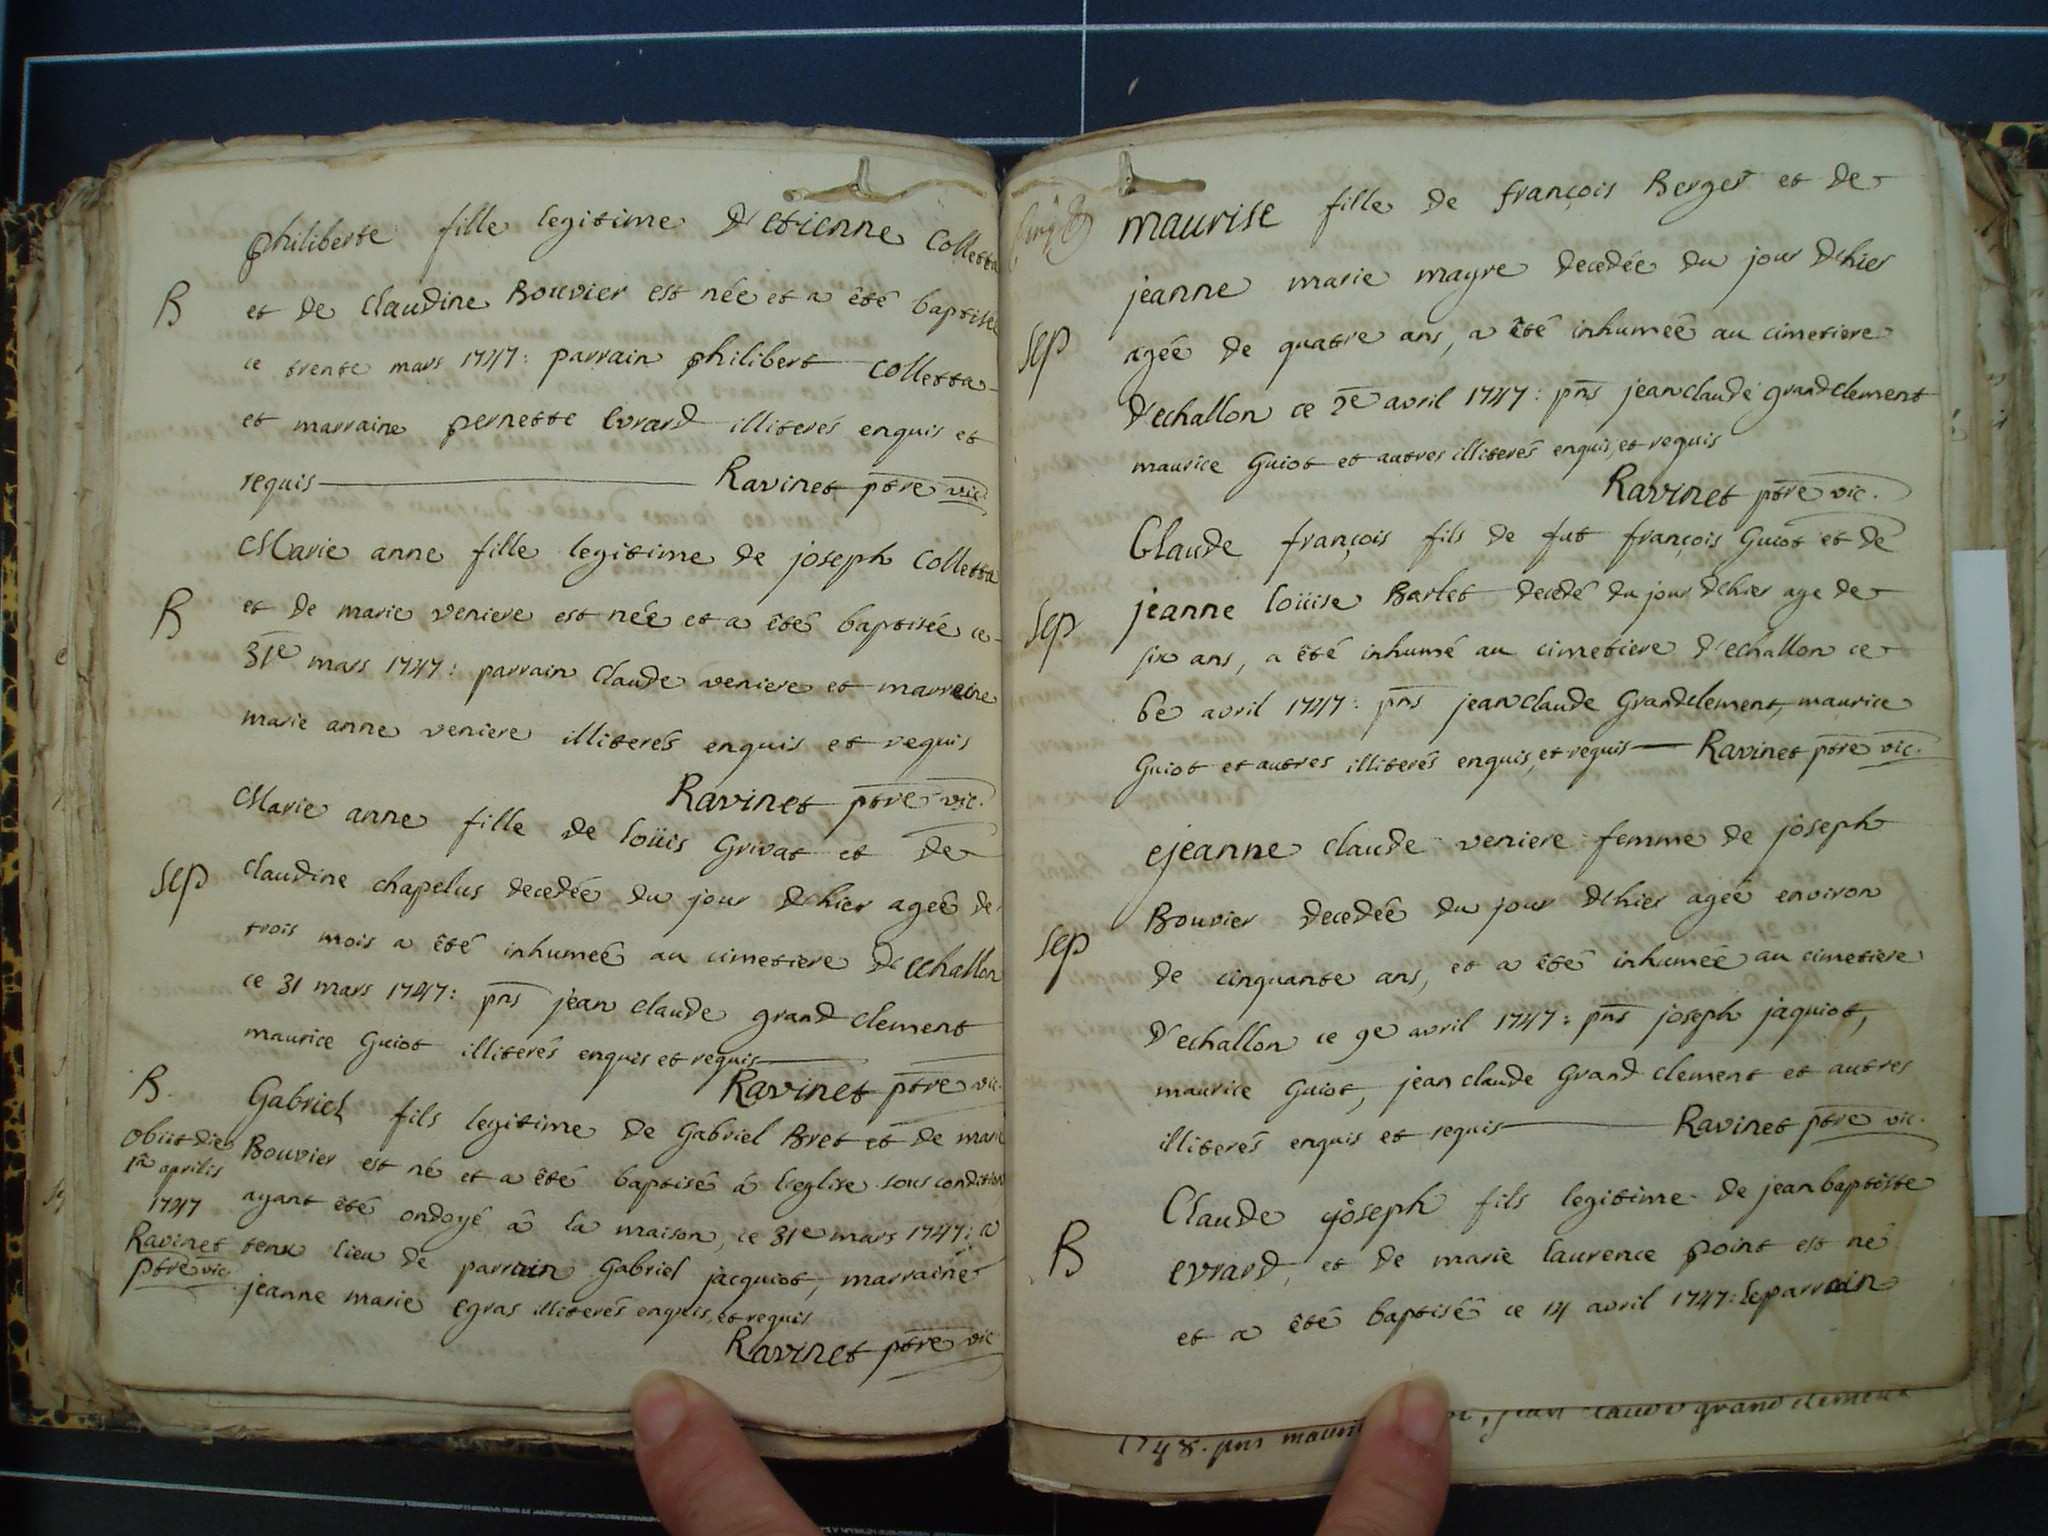 philiberte fille legitime D'etienne Colletta
B
et de Claudine Bouvier est née et a êté baptisée
ce trente mars 1747: parrain philibert Colletta
et marraine pernette Evrard illiterés enquis et
requis Ravinet ptre vic.
Marie anne fille legitime de joseph Colletta
B
et de marie veniere est née et a êté baptiséé ce
31e mars 1747: parrain Claude veniere et marraine
marie anne veniere illiterés enquis et requis
Ravinet ptre vic.
Marie anne fille de loüis Grivat et de
sep
Claudine chapelus decedéé du jour d'hier ageé de
trois mois a êté inhumeé au cimetiere D'echallon
ce 31 mars 1747: pns jean claude grand clement
maurice Guiot illiterés enquis et requis
Ravinet ptre vic.
B.
Gabriel fils legitime de Gabriel Bret et de marie
Bouvier est né et a êté baptisé â l'eglise sous condition
ayant êté ondoyé â la maison, ce 31e mars 1747: a
tenu lieu de parrain Gabriel jacquiot, marraine
jeanne marie Egras illiterés enquis, et requis
Ravinet ptre vic
Obiit die
1a aprilis
1747
Ravinet
ptre vic.
maurise fille de françois Berger et de
jeanne marie mayre decedée du jour d'hier
sep
agéé de quatre ans, a êté inhumeé au cimetiere
D'echallon ce 2e avril 1747: pns jean claude grandclement
maurice Guiot et autres illiterés enquis, et requis
Ravinet ptre vic.
Claude françois fils de fut françois Guiot et de
sep
jeanne loüise Barlet decedé du jour d'hier age de
six ans, a êté inhumé au cimetiere d'echallon ce
6e avril 1747: pns jean claude Grandclement, maurice
Guiot et autres illiterés enquis, et requis Ravinet ptre vic.
jeanne claude veniere femme de joseph
Bouvier decedéé du jour d'hier ageé environ
sep
de cinquante ans, et a êté inhumeé au cimetiere
D'echallon ce 9e avril 1747: pns joseph jaquiot,
maurice Guiot, jean claude Grand clement et autres
illiterés enquis et requis Ravinet ptre vic.
Claude joseph fils legitime de jean baptiste
B
Evrard, et de marie laurence point est né
et a êté baptisé ce 14 avril 1747: le parrain
1748. pns jean claude grand clement